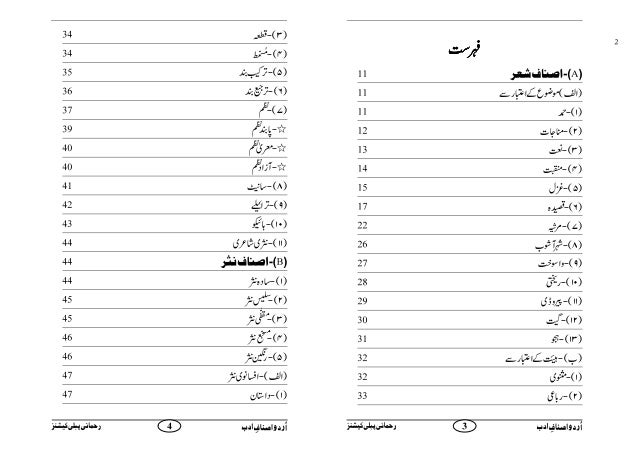 2
فہرست
(A)-اصناف شعر 11
(الف) موضوع کے اعتبار سے 11
(۱)-حمد 11
(۲)-مناجات 12
(۳)-نعت 13
(۴)-منقبت 14
(۵)-غزل 15
(۶)-قصیدہ 17
(۷)-مرثیہ 22
(۸)-شہر آشوب 26
(۹)-واسوخت 27
(۱۰)-ریختی 28
(۱۱)-پیروڈی 29
(۱۲)-گیت 30
(۱۳)-ہجو 31
(ب)-ہیئت کے اعتبار سے 32
(۱)-مثنوی 32
(۲)-رباعی 33
اُردو اصنافِ ادب 3 رحمانی پبلی کیشنز
(۳)-قطعہ 34
(۴)-مُسمّط 34
(۵)-ترکیب بند 35
(۶)-ترجیع بند 36
(۷)-نظم 37
☆-پابند نظم 39
☆-معریٰ نظم 40
☆-آزاد نظم 40
(۸)-سانیٹ 41
(۹)-ترائیلے 42
(۱۰)-ہائیکو 43
(۱۱)-نثری شاعری 44
(B)-اصناف نثر 44
(۱)-سادہ نثر 44
(۲)-سلیس نثر 45
(۳)-مقفیٰ نثر 45
(۴)-مسجع نثر 46
(۵)-رنگین نثر 46
(الف)-افسانوی نثر 47
(۱)-داستان 47
اُردو اصنافِ ادب 4 رحمانی پبلی کیشنز